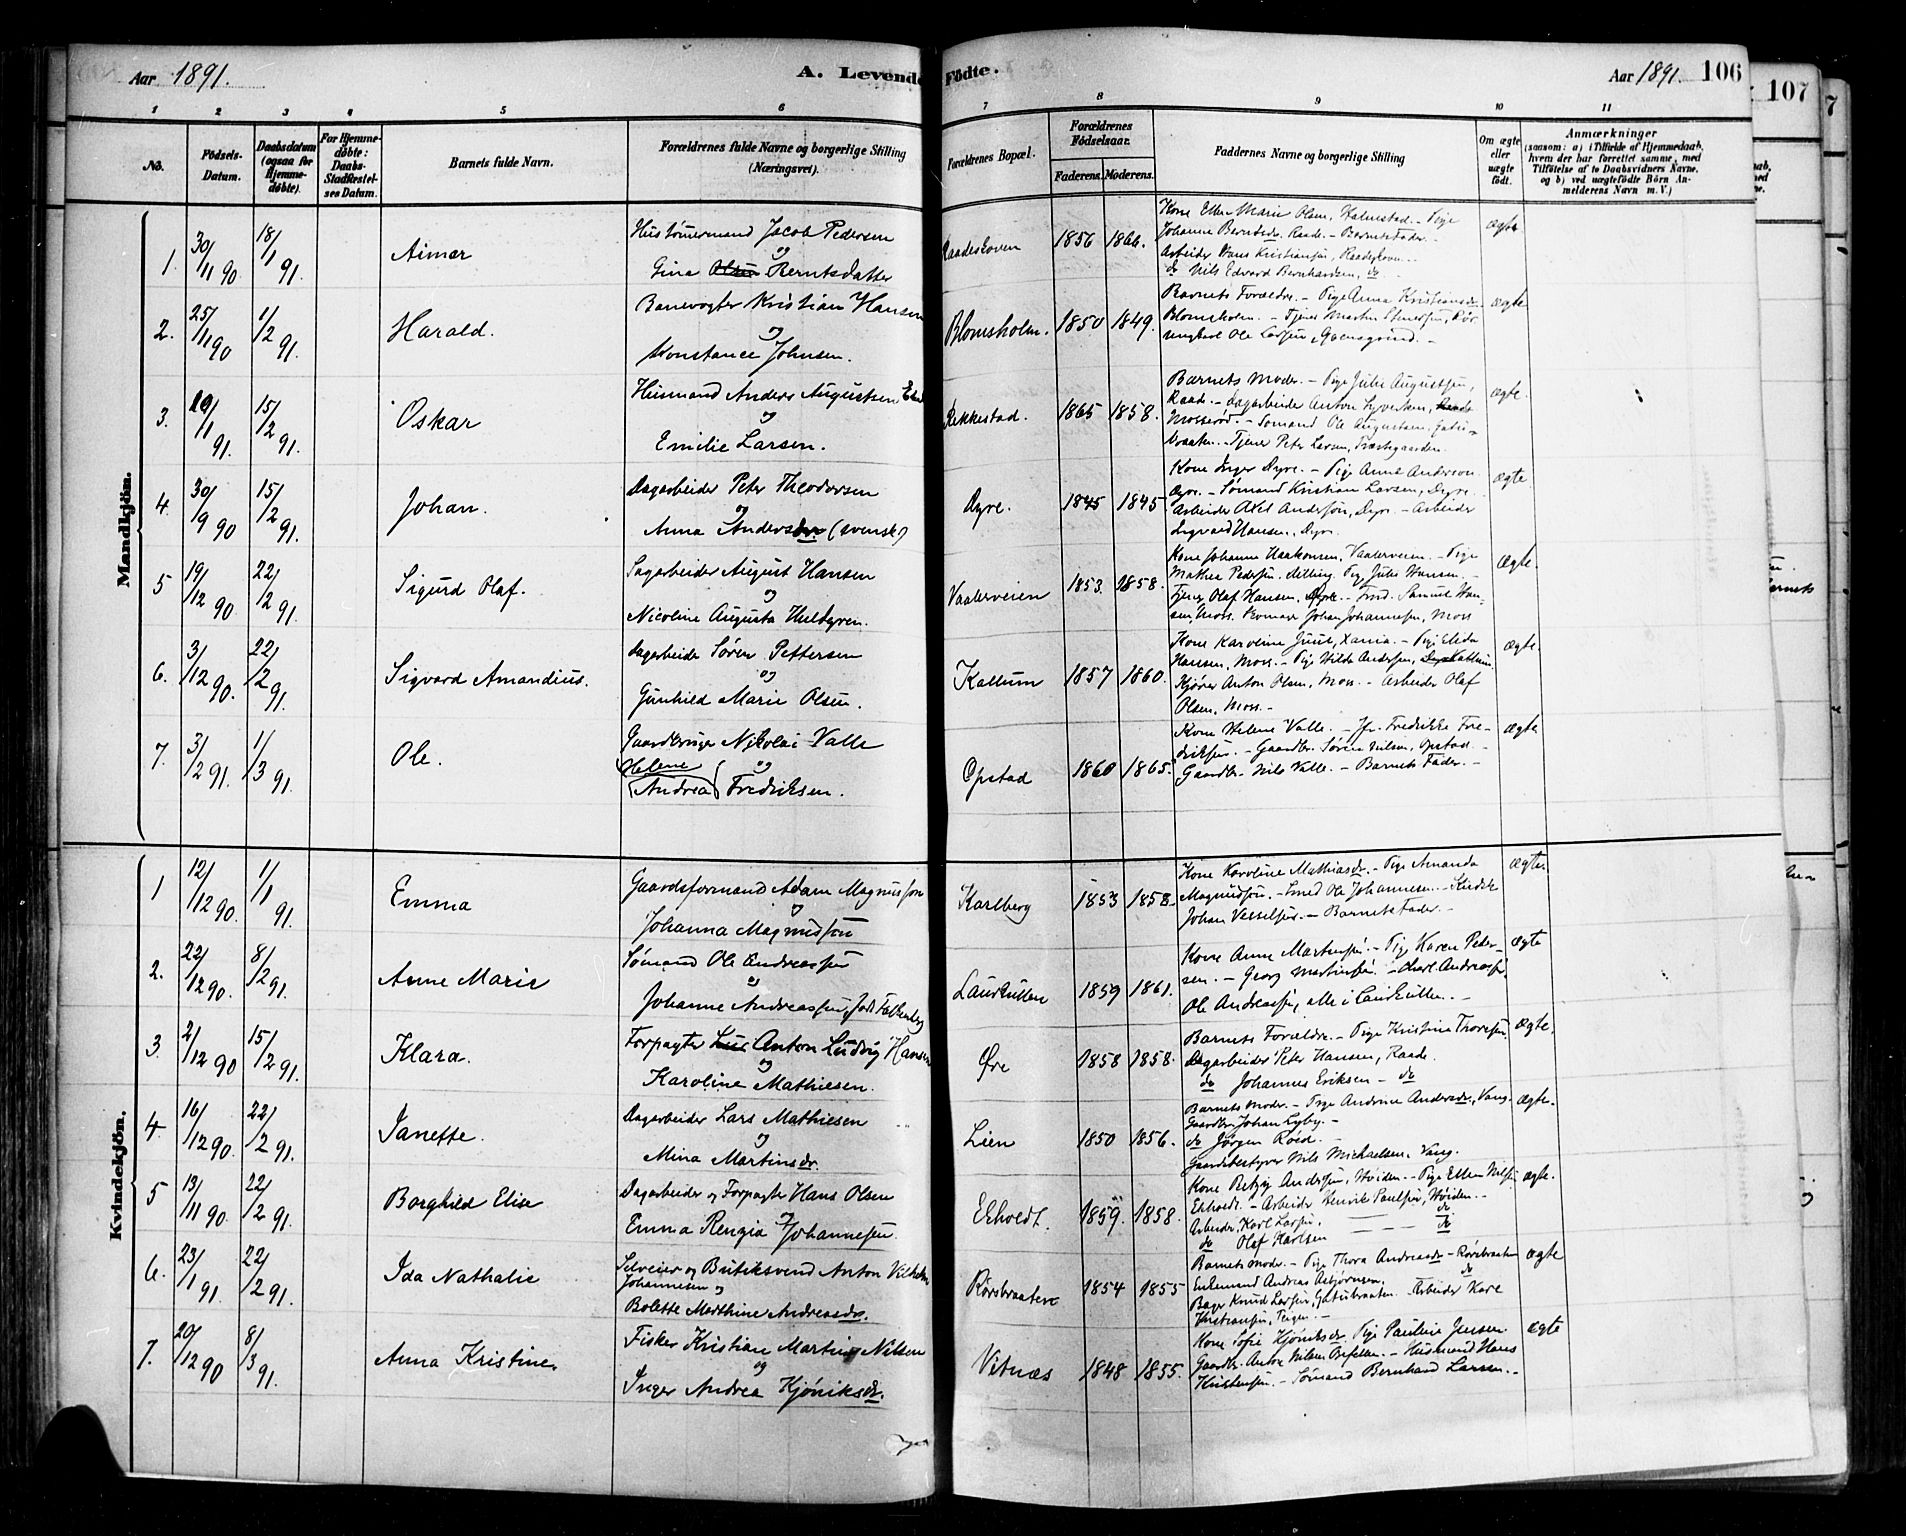 Aar 1891.
A. Levende Födte.
Aar 1891. 106
107
1 2 3 4 5 6 7 8 9 10 11
No.
Födsels-Datum.
Daabsdatum (ogsaa for Hjemmedöbte).
For Hjemmedöbte: Daabs-Stadfæstelses Datum.
Barnets fulde Navn.
Forældrenes fulde Navne og borgerlige Stilling (Næringsvei).
Forældrenes Bopæl.
Forældrenes Födselsaar.
Faderens. Moderens.
Faddernes Navne og borgerlige Stilling
Om ægte eller uægte födt.
Anmærkninger
(saasom: a) i Tilfælde af Hjemmedaab, hvem der har forrettet samme, med Tilföielse af to Daabsvidners Navne, og b) ved uægtefödte Börn Anmelderens Navn m. V.)
Mandkjön.
1. 30/11 90 18/1 91. Aimar
Jacob Pedersen
og
Gina Berntsdatter
Raadeskoven 1856 1866.
Kone Ellen Marie Olsen, Halmstad. - Pige
Johanne Berntsdr. Raade. - Barnets Fader. -
Arbeider Hans Kristiansen, Raadeskoven. -
do Nils Edvard Bernhardsen, do
ægte
2. 25/11 90 1/2 91. Harald.
Banevogter Kristian Hansen
og
Konstance Johnsen.
Blomsholm. 1850 1849.
Barnets Forældre. - Pige Anna Kristiansdr.
Blomsholm. - Tjener Martin
Ole Larsen,
ægte
3. 1/1 91. 15/2 91. Oskar
Husmand Anders Augustsen
og
Emilie Larsen.
Rekkestad. 1865 1858.
Barnets Moder. - Pige Julie Augustsen,
Raade. - Dagarbeider Anton Syversen,
Mosserød. - Sømand Ole Augustsen,
Tjener Peter Larsen, Præstegaarden.
ægte.
4. 30/9 90 15/2 91. Johan.
Dagarbeider Peter Theodorsen
og
Anna Andersdr. (svensk)
Dyre. 1845 1845
Kone Inger Dyre. - Pige Anne Anderson
Dyre. - Sømand Kristian Larsen, Dyre.
Arbeider Axel Anderson, Dyre. - Arbeider
Ingvard Hansen, Dyre.
ægte
5 19/12 90 22/2 91. Sigurd Olaf.
Sagarbeider August Hansen
og
Nicoline Augusta Hultgren.
Vaalerveien 1853. 1858.
Kone Johanne Haakonsen, Vaalerveien. - Pige
Mathea Pedersen, Pige Julie Hansen. -
Tjener Olaf Hansen, Dyre. - Samuel Han-
sen, Moss. Johan Johannesen, Moss
ægte.
6. 3/12 90. 22/2 91. Sigvard Amandius.
Dagarbeide Søren Pettersen
og
Gunhild Marie Olsen.
Kallum 1857 1860.
Kone Karoline Juul, Xania. - Pige Elida
Hansen, Moss. - Pige Hilda Andersen,
Kjører Anton Olsen, Moss. - Arbeider Olaf
Olsen, Moss. -
ægte.
7. 3/2 91. 1/3 91. Ole.
Gaardbruger Nikolai Valle
og
(Helene Andrea) Fredriksen.
Opstad 1860 1865.
Kone Helene Valle. - Jfr. Fredrikke Fre-
driksen. - Gaardbr. Søren Nilsen, Opstad. -
Gaardbr. Nils Valle. - Barnets Fader. -
ægte
Kvindekjön.
1 12/12 90. 1/1 91. Emma
Gaardsformand Adam Magnusson
og
Johanna Magnusson
Karlberg 1853 1858.
Kone Karoline Mathiasdr. - Pige Amanda
Magnusson. - Smed Ole Johannesen. -
Johan Vesselsen. - Barnets Fader. -
ægte.
2. 22/12 90. 8/2 91. Anne Marie
Sømand Ole Andreassen
og
Johanne Andreassen, født Falkenberg
1859 1861.
Kone Anne Martinsen. - Pige Karen Peder-
sen. - Georg Martinsen. - Karl Andreassen,
Ole Andreassen, alle i
ægte
3. 2/12 90 15/2 91. Klara.
Forpagter Anton Ludvig Hansen
og
Karoline Mathiesen.
Øre 1858 1858.
Barnets Forældre. - Pige Kristine Thoresen.
Dagarbeider Peter Hansen, Raade.
do Johannes Eriksen - do
ægte.
4. 16/12 90. 22/2 91. Janette.
Dagarbeider Lars Mathiesen
og
Mina Martinsdr.
Lien 1850 1856.
Barnets Moder. - Pige Andrine Andersdr., Vang.
Gaardbr. Johan Lyby. -
do Jørgen Røed. -
Gaardbestyrer Nils Michaelsen, Vang.
ægte.
5 13/11 90. 22/2 91. Borghild Elise
Dagarbeider og Forpagter Hans Olsen
og
Emma Rengia Johannesen.
Ekholdt. 1859. 1858.
Kone Andersen, Høiden. - Pige Ellen Nilsen
Ekholdt. - Arbeider Henrik Paulsen, Høiden. -
Arbeider Karl Larsen, do
do Olaf Karlsen do
ægte.
6. 23/1 91. 22/2 91. Ida Nathalie
Selveier og Butiksvend Anton Vilhelm
Johannesen og
Bolette Marthine Andreasdr.
Rørsbraaten 1854 1855
Barnets Moder. - Pige Thora Andreasdr. - Rørsbraaten
Enkemand Andreas Asbjørnsen, do
Bager Knud Larsen, Arbeider Karl
Kristiansen, Teigen. -
ægte
7. 20/12 90 8/3 91. Anna Kristine.
Fisker Kristian Martin Nilsen
og
Inger Andrea Kjøniksdr.
Vitnæs 1848 1855.
Kone Sofie Kjøniksdr. Pige Pauline Jensen
Gaardbr. Anton Nilsen - Husmand Hans
Kristensen. - Sømand Bernhard Larsen. -
ægte